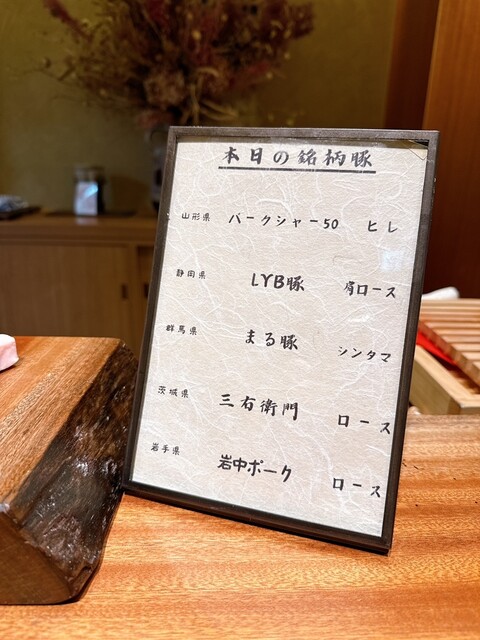 本日の銘柄豚
山形県 バークシャー50 ヒレ
静岡県 LYB豚 肩ロース
群馬県 まる豚 シンタマ
茨城県 三右衛門 ロース
岩手県 岩中ポーク ロース